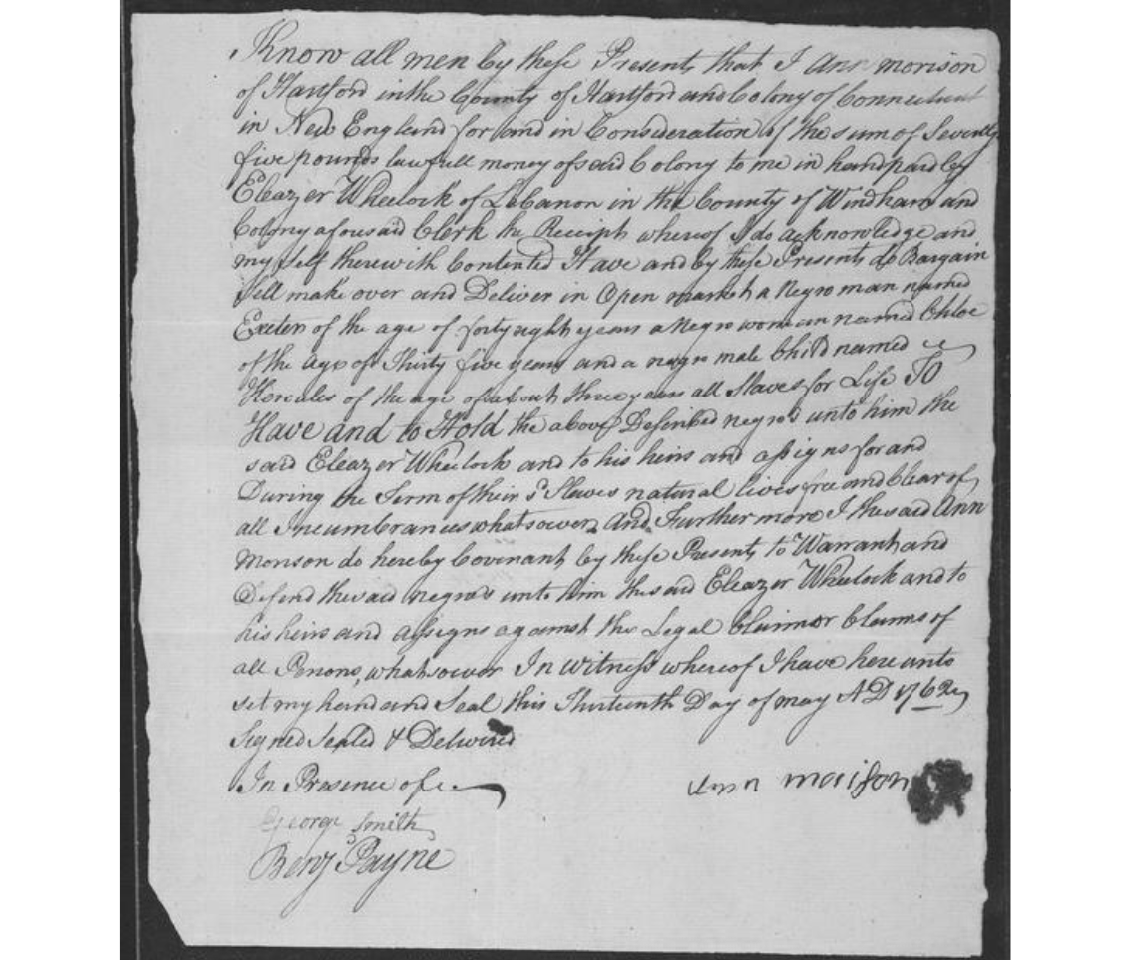 Know all men by these Presents that I Ann morison
of Hartford in the County of Hartford and Colony of Connecticut
in New England for and in Consideration of the sum of Seventy
five pounds lawfull money of said Colony to me in hand paid by
Eleazer Wheelock of Lebanon in the County of Windham and
Colony aforesaid Clerk the Receipt whereof I do acknowledge and
my self therewith Contented Have and by these Presents do Bargain
Sell make over and Deliver in Open market a Negro man named
Exeter of the age of forty eight years a Negro woman named Chloe
of the Age of Thirty five years and a negro male Child named
Hercules of the age of about three years all Slaves for Life To
Have and to Hold the above Described negro's unto him the
said Eleazer Wheelock and to his heirs and assigns for and
During the Term of their sd Slaves natural lives free and Clear of
all Incumbrances whatsoever And Furthermore I the said Ann
Morison do hereby Covenant by these Presents to Warrant and
Defend the said negro's unto him the said Eleazer Wheelock and to
his heirs and assigns against the Legal Claim or Claims of
all Persons whatsoever In witness whereof I have here unto
set my hand and Seal this Thirteenth Day of may AD 1762
Signed Sealed & Delivered
In Presence of
Ann morison
George Smith
Benja Payne